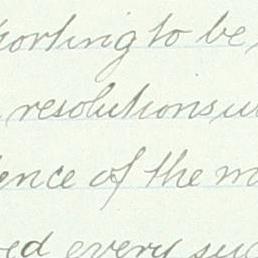 porting to be
resolutions w
ence of the m
ed every suc